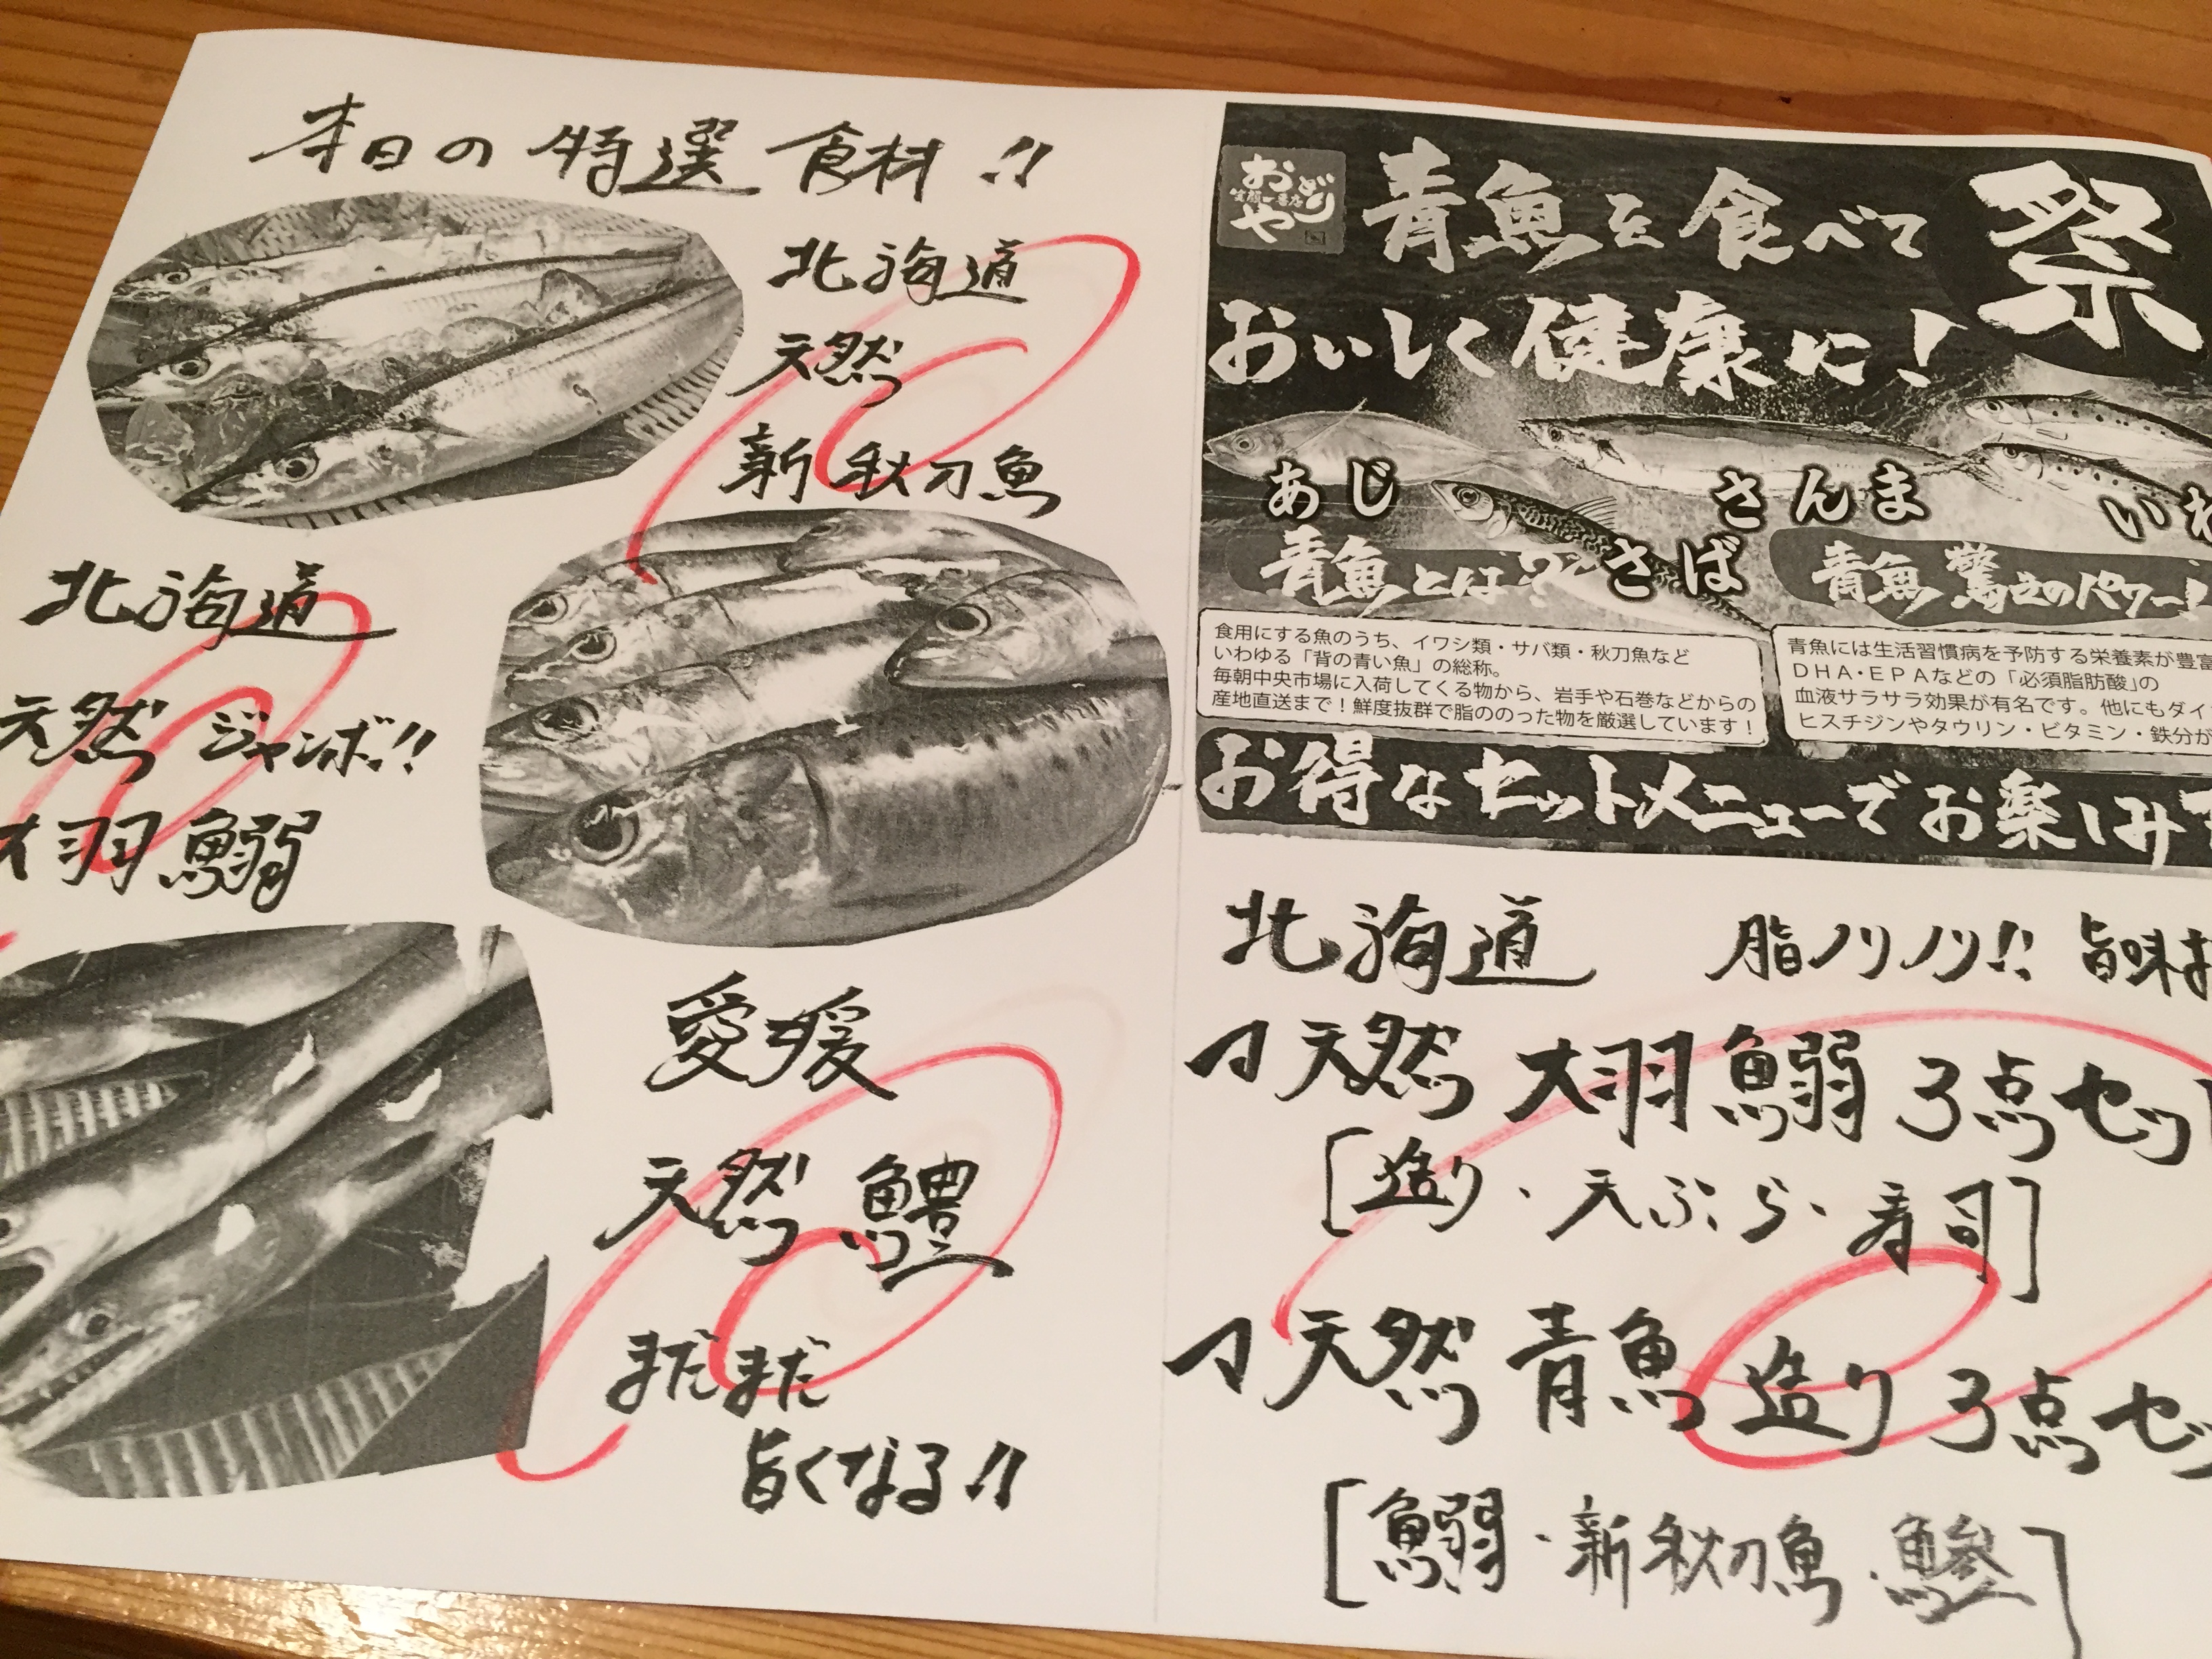 本日の特選食材!!
北海道
天然
新秋刀魚
北海道
天然 ジャンボ!!
大羽鰯
愛媛
天然 鱧
まだまだ
旨くなる!!
おどりや
青魚を食べて
祭
おいしく健康に!
あじ
さんま
いわ
さば
青魚とは?
青魚 驚きのパワー!
食用にする魚のうち、イワシ類・サバ類・秋刀魚など
いわゆる「背の青い魚」の総称。
毎朝中央市場に入荷してくる物から、岩手や石巻などからの
産地直送まで!鮮度抜群で脂ののった物を厳選しています!
青魚には生活習慣病を予防する栄養素が豊富
DHA・EPAなどの「必須脂肪酸」の
血液サラサラ効果が有名です。他にもダイ
ヒスチジンやタウリン・ビタミン・鉄分が
お得なセットメニューでお楽しみ下
北海道 脂ノリノリ!! 旨味
天然 大羽鰯 3点セット
[造り・天ぷら・寿司]
天然 青魚 造り 3点セッ
[鰯・新秋刀魚・鯵]